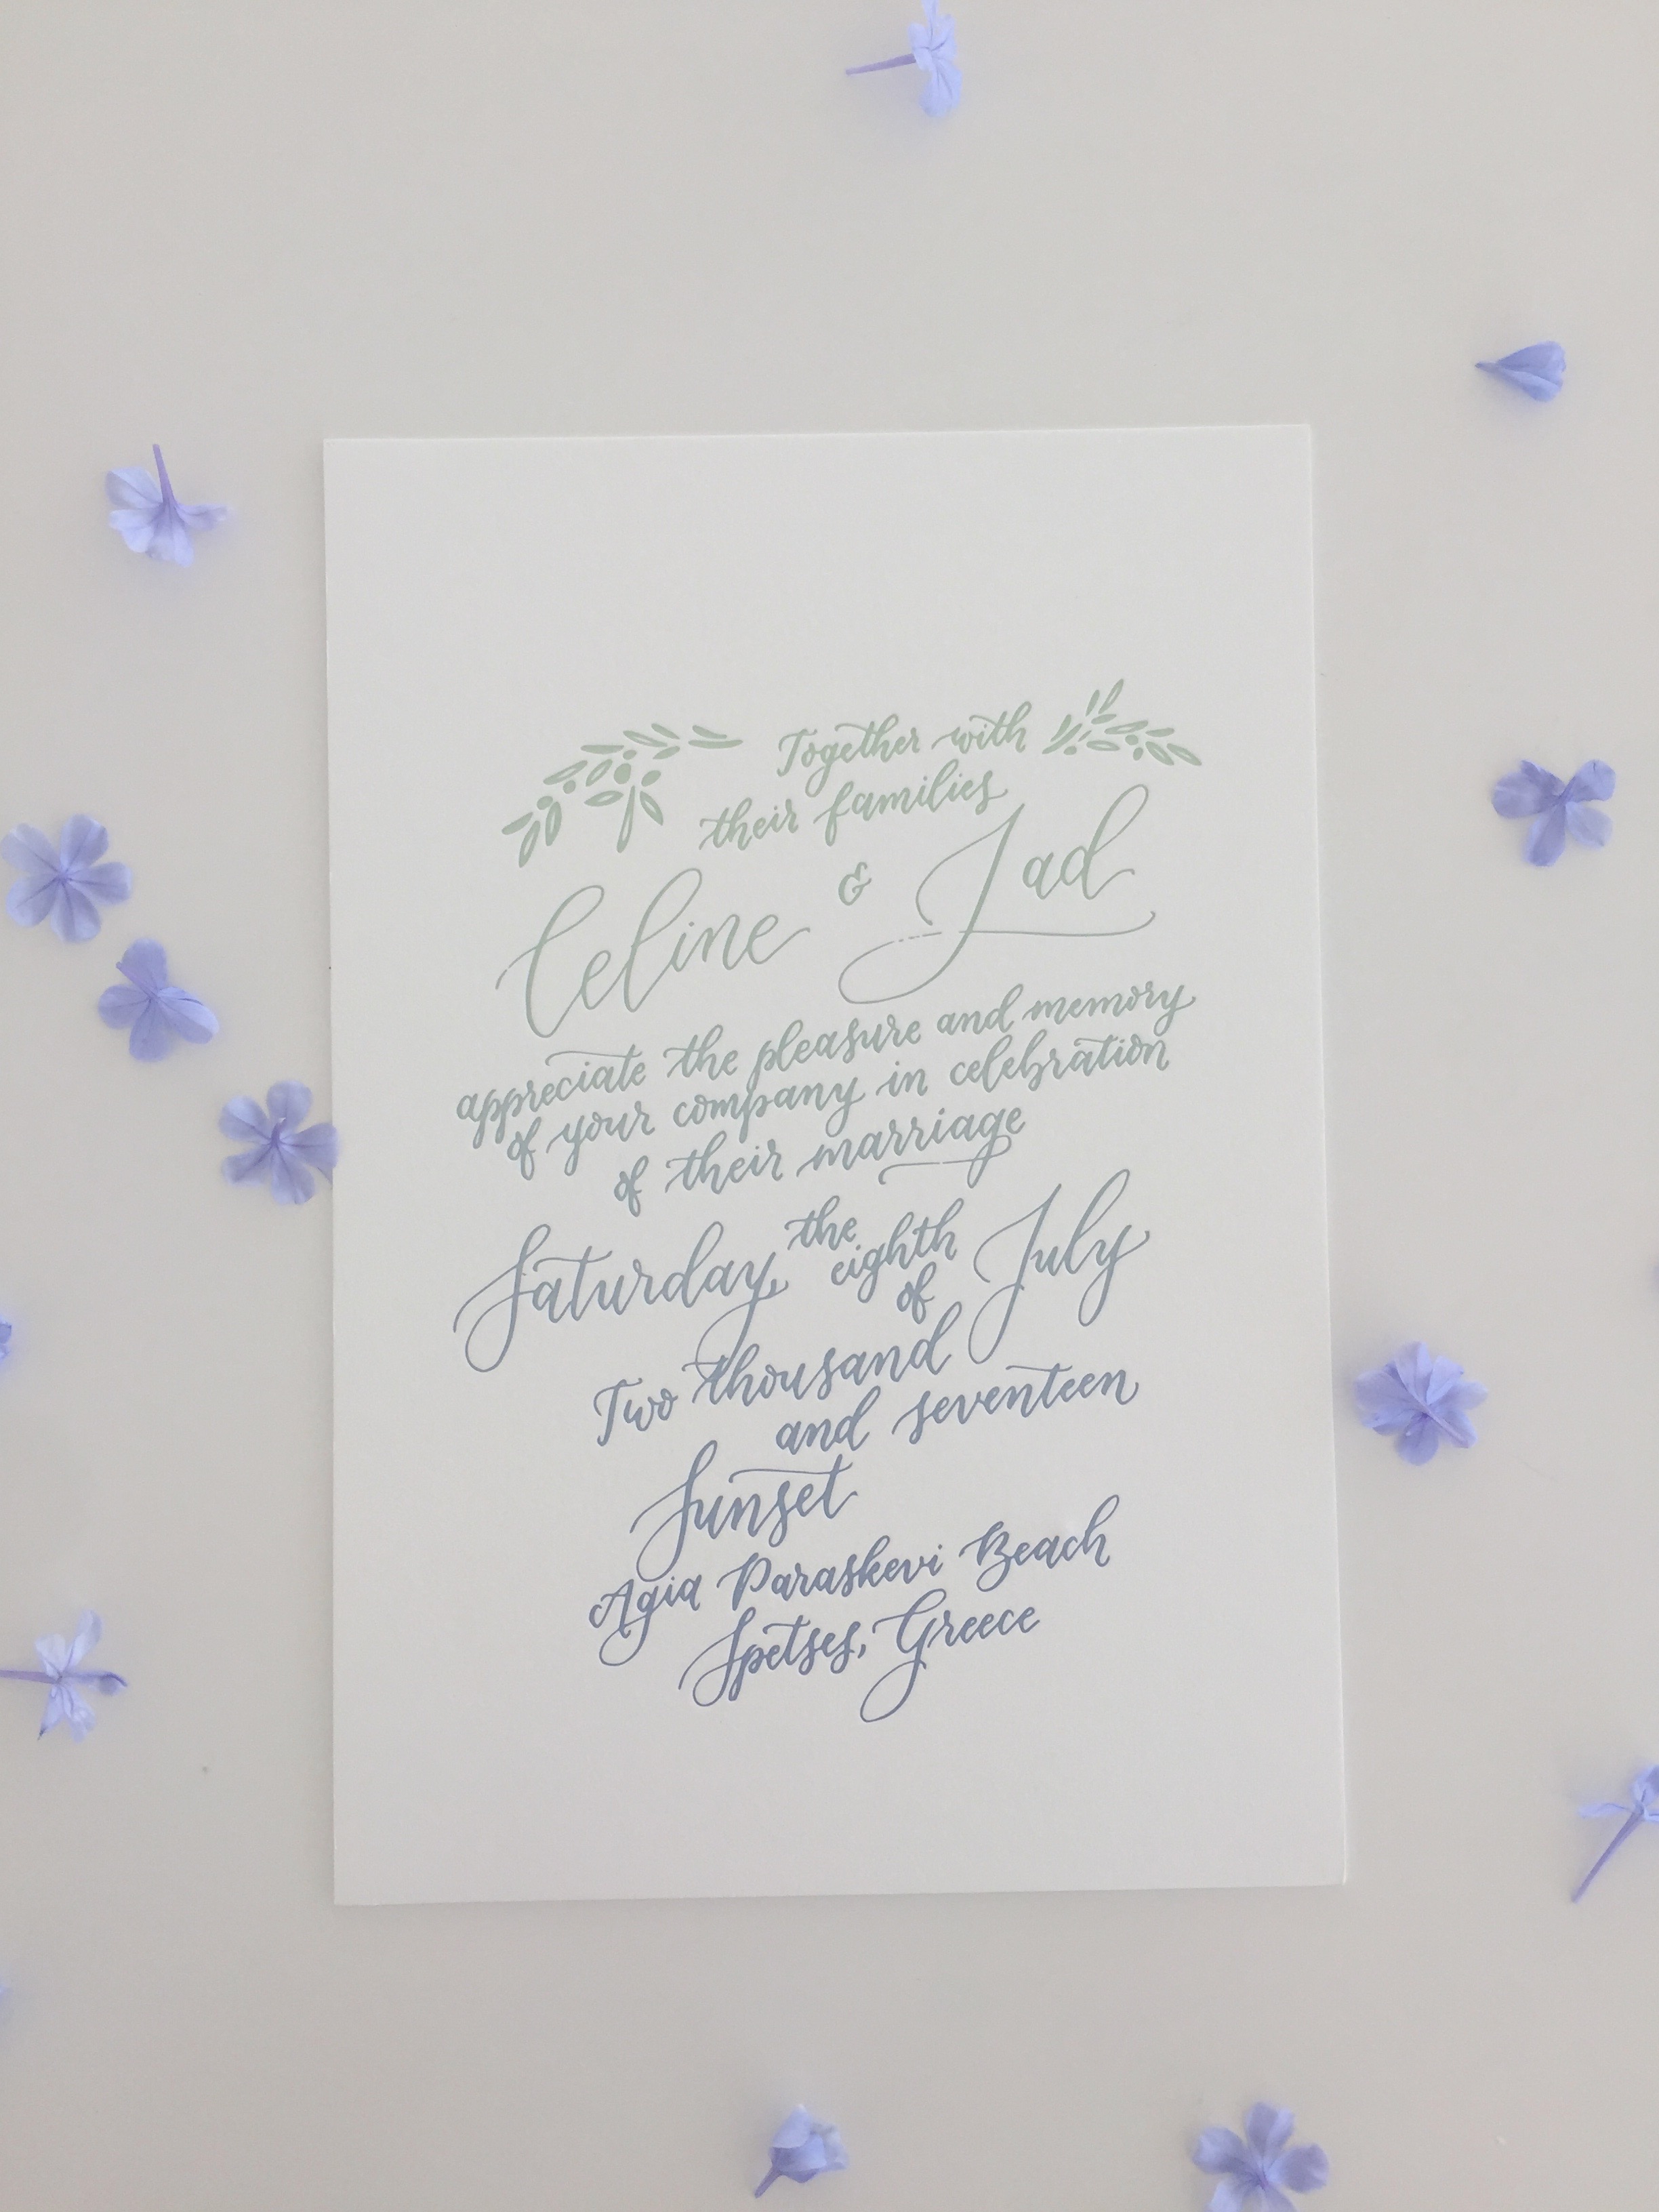 Together with
their families
Celine & Jad
appreciate the pleasure and memory
of your company in celebration
of their marriage
Saturday, the eighth of July
Two thousand
and seventeen
Sunset
Agia Paraskevi Beach
Spetses, Greece